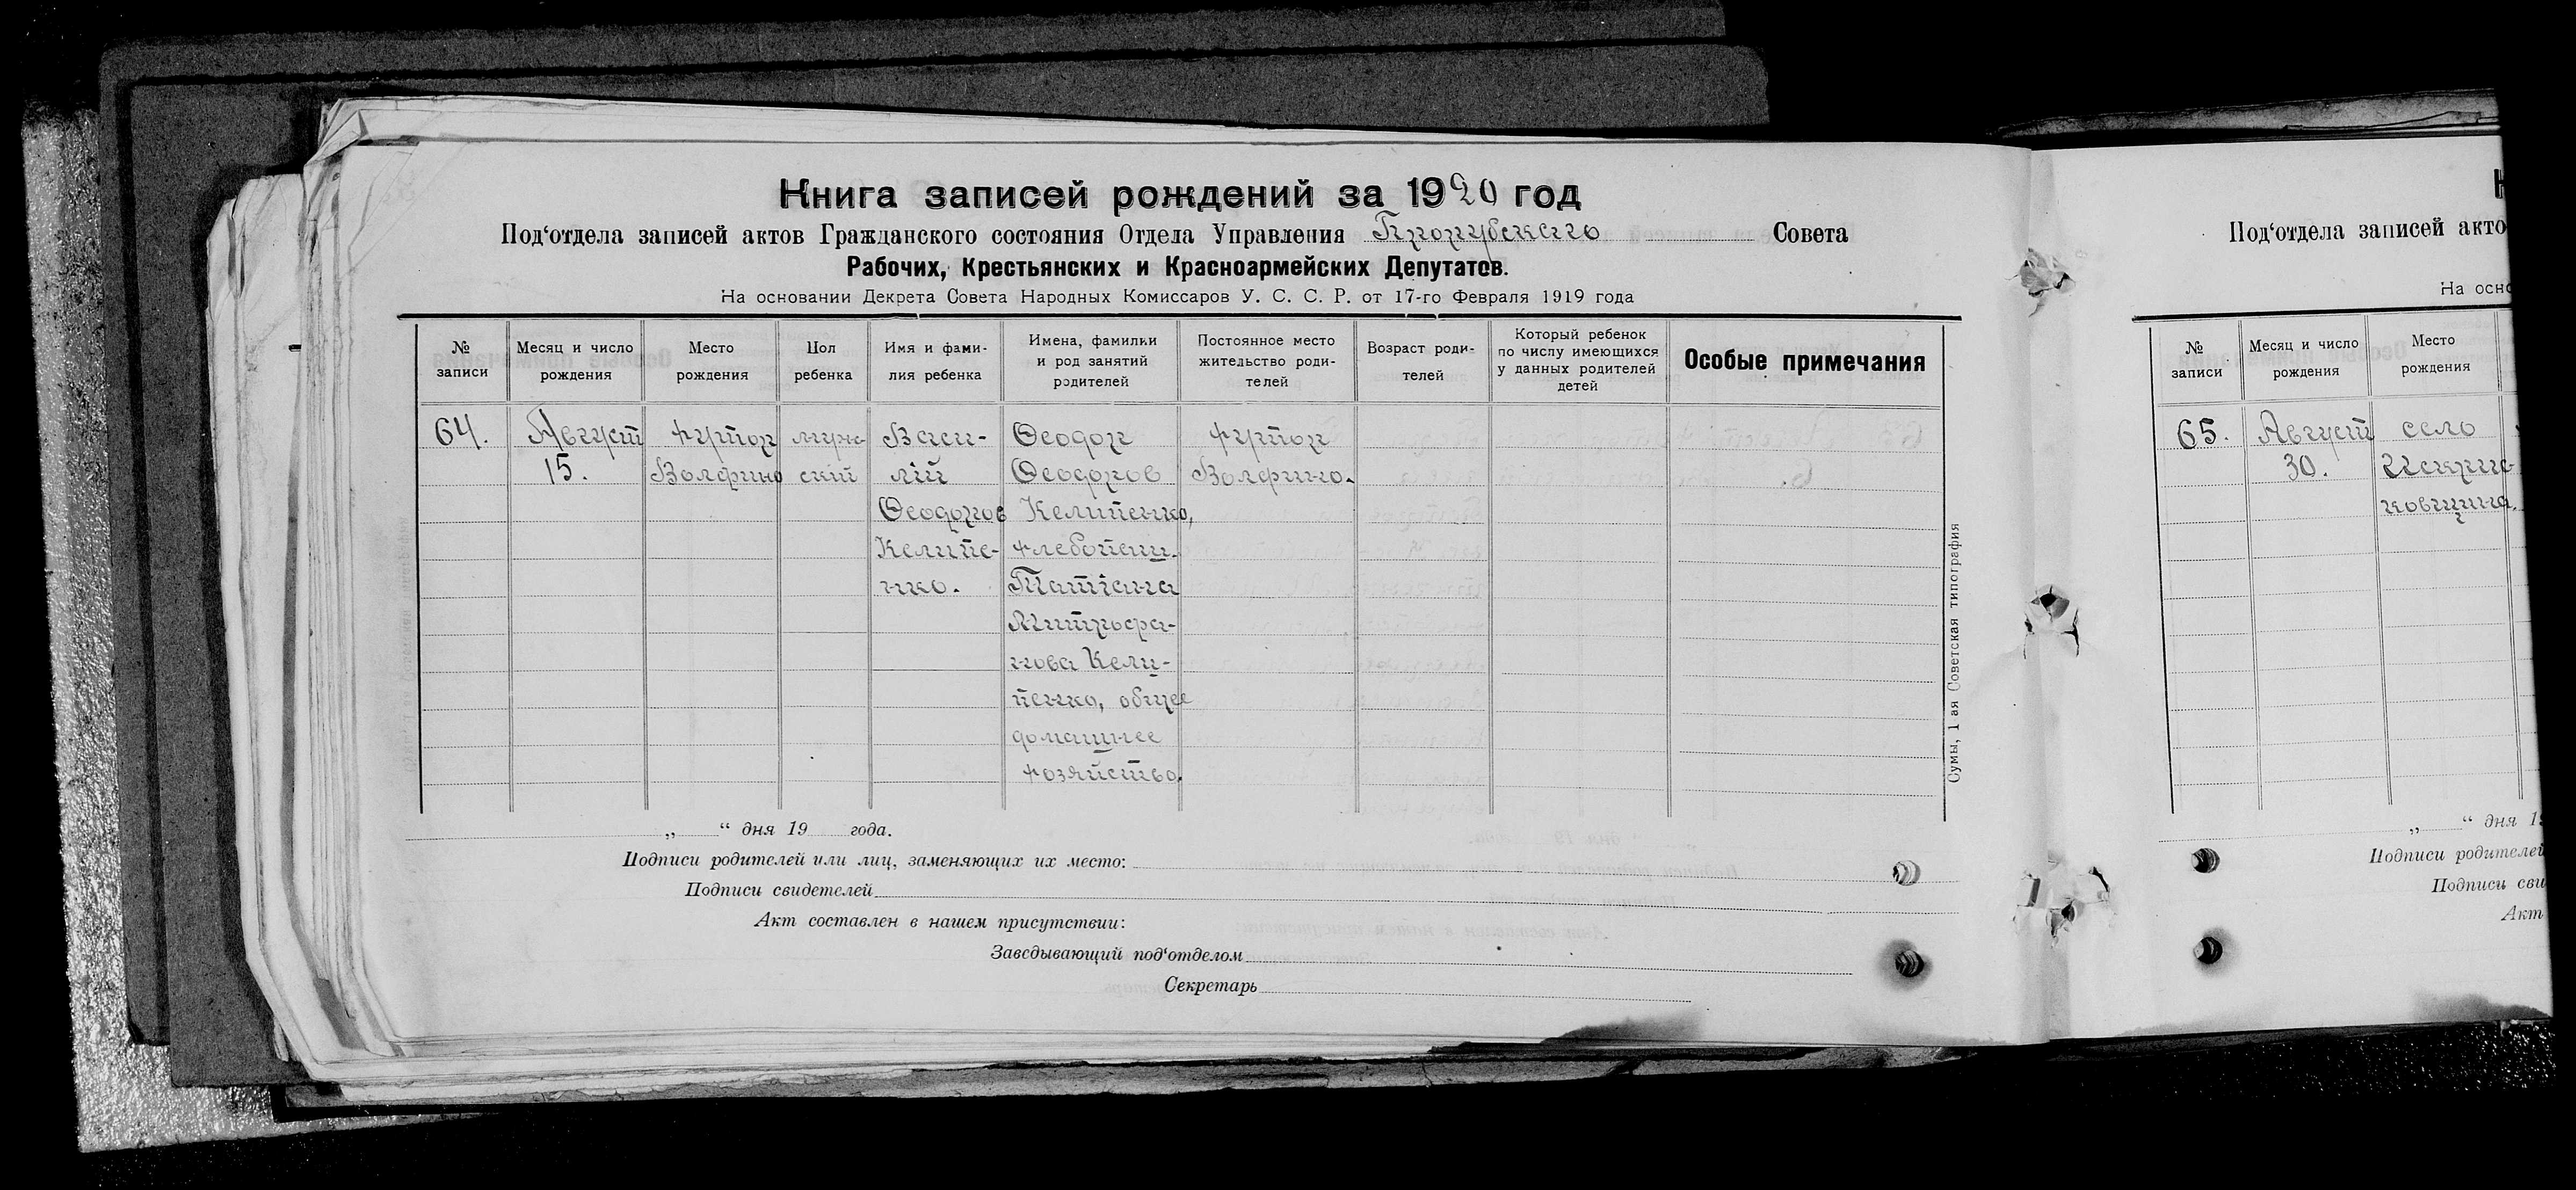 Книга записей рождений за 1920 год
Под‘отдела записей актов Гражданского состояния Отдела Управления Прорубского Совета
Рабочих, Крестьянских и Красноармейских Депутатов.
На основании Декрета Совета Народных Комиссаров У. С. С. Р. от 17-го Февраля 1919 года
№ записи
Месяц и число рождения
Место рождения
Пол ребенка
Имя и фами-
лия ребенка
Имена, фамилии
и род занятий
родителей
Постоянное место
жительство роди-
телей
Возраст роди-
телей
Который ребенок
по числу имеющихся
у данных родителей
детей
Особые примечания
64.
Август
15.
хутор
Волфино
муж-
ский
Васи-
лий
Ѳеодоров
Келипе-
нко.
Ѳеодор
Ѳеодоров
Келипенко,
хлебопаш.
Татіана
Митрофа-
нова Кели-
пенко, общее
домашнее
хозяйство.
хутор
Волфино.
„ “ дня 19 года.
Подписи родителей или лиц, заменяющих их место:
Подписи свидетелей
Акт составлен в нашем присутствии:
Заведывающий под‘отделом
Секретарь
Сумы, 1 ая Советская типография
Под‘отдела записей акто
На осно
№ записи
Месяц и число рождения
Место рождения
65.
Август
30.
село
„ “ дня 19
Подписи родителей
Подписи сви
Акт